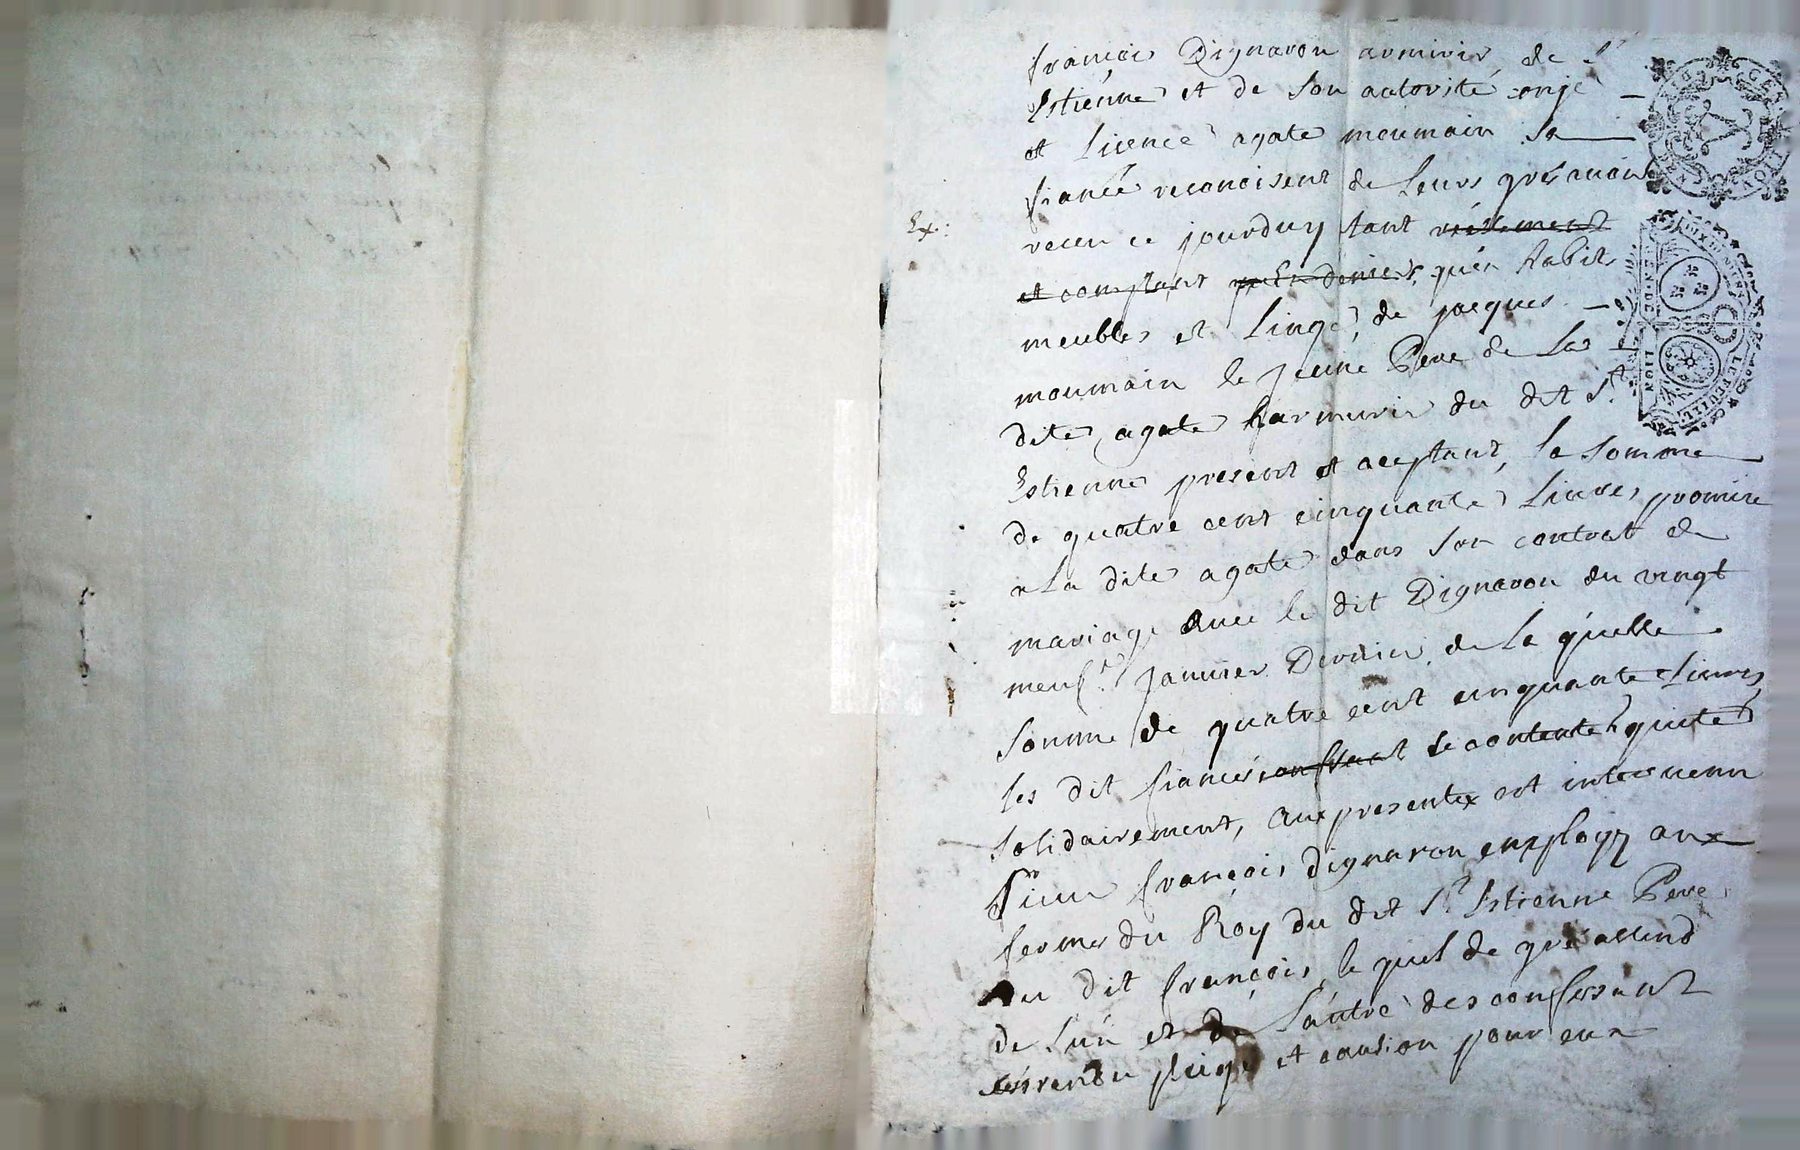 françois Dignaron armurier de St
Estienne et de Son autorité conjé
et Licence agate moumain sa
fiancée reconoisent de Leurs grés avoir
Ex:
receu ce jourduy tant réélement
et comptant en deniers, qu'en habits
meubles et Linge, de jacques
moumain le jeune Pere de La
dite agate harmurié du dit St
Estienne présent et aceptant, la somme
de quatre cent cinquante Livres promise
a La dite agate dans son contrat de
mariage avec le dit Dignaron du vingt
neuf janvier Dernier, de La quelle
somme de quatre cent cinquante Livres
les dit fiancés se contente quite
solidairement, aux presentes est intervenu
Sieur françois dignaron employy aux
fermes du Roy du dit St Estienne Pere
Du dit françois, le quel de gré
de l'un et de l'autre des confessant
rendu plege et caution pour eux
GEN DE LION
GEN·DE LION